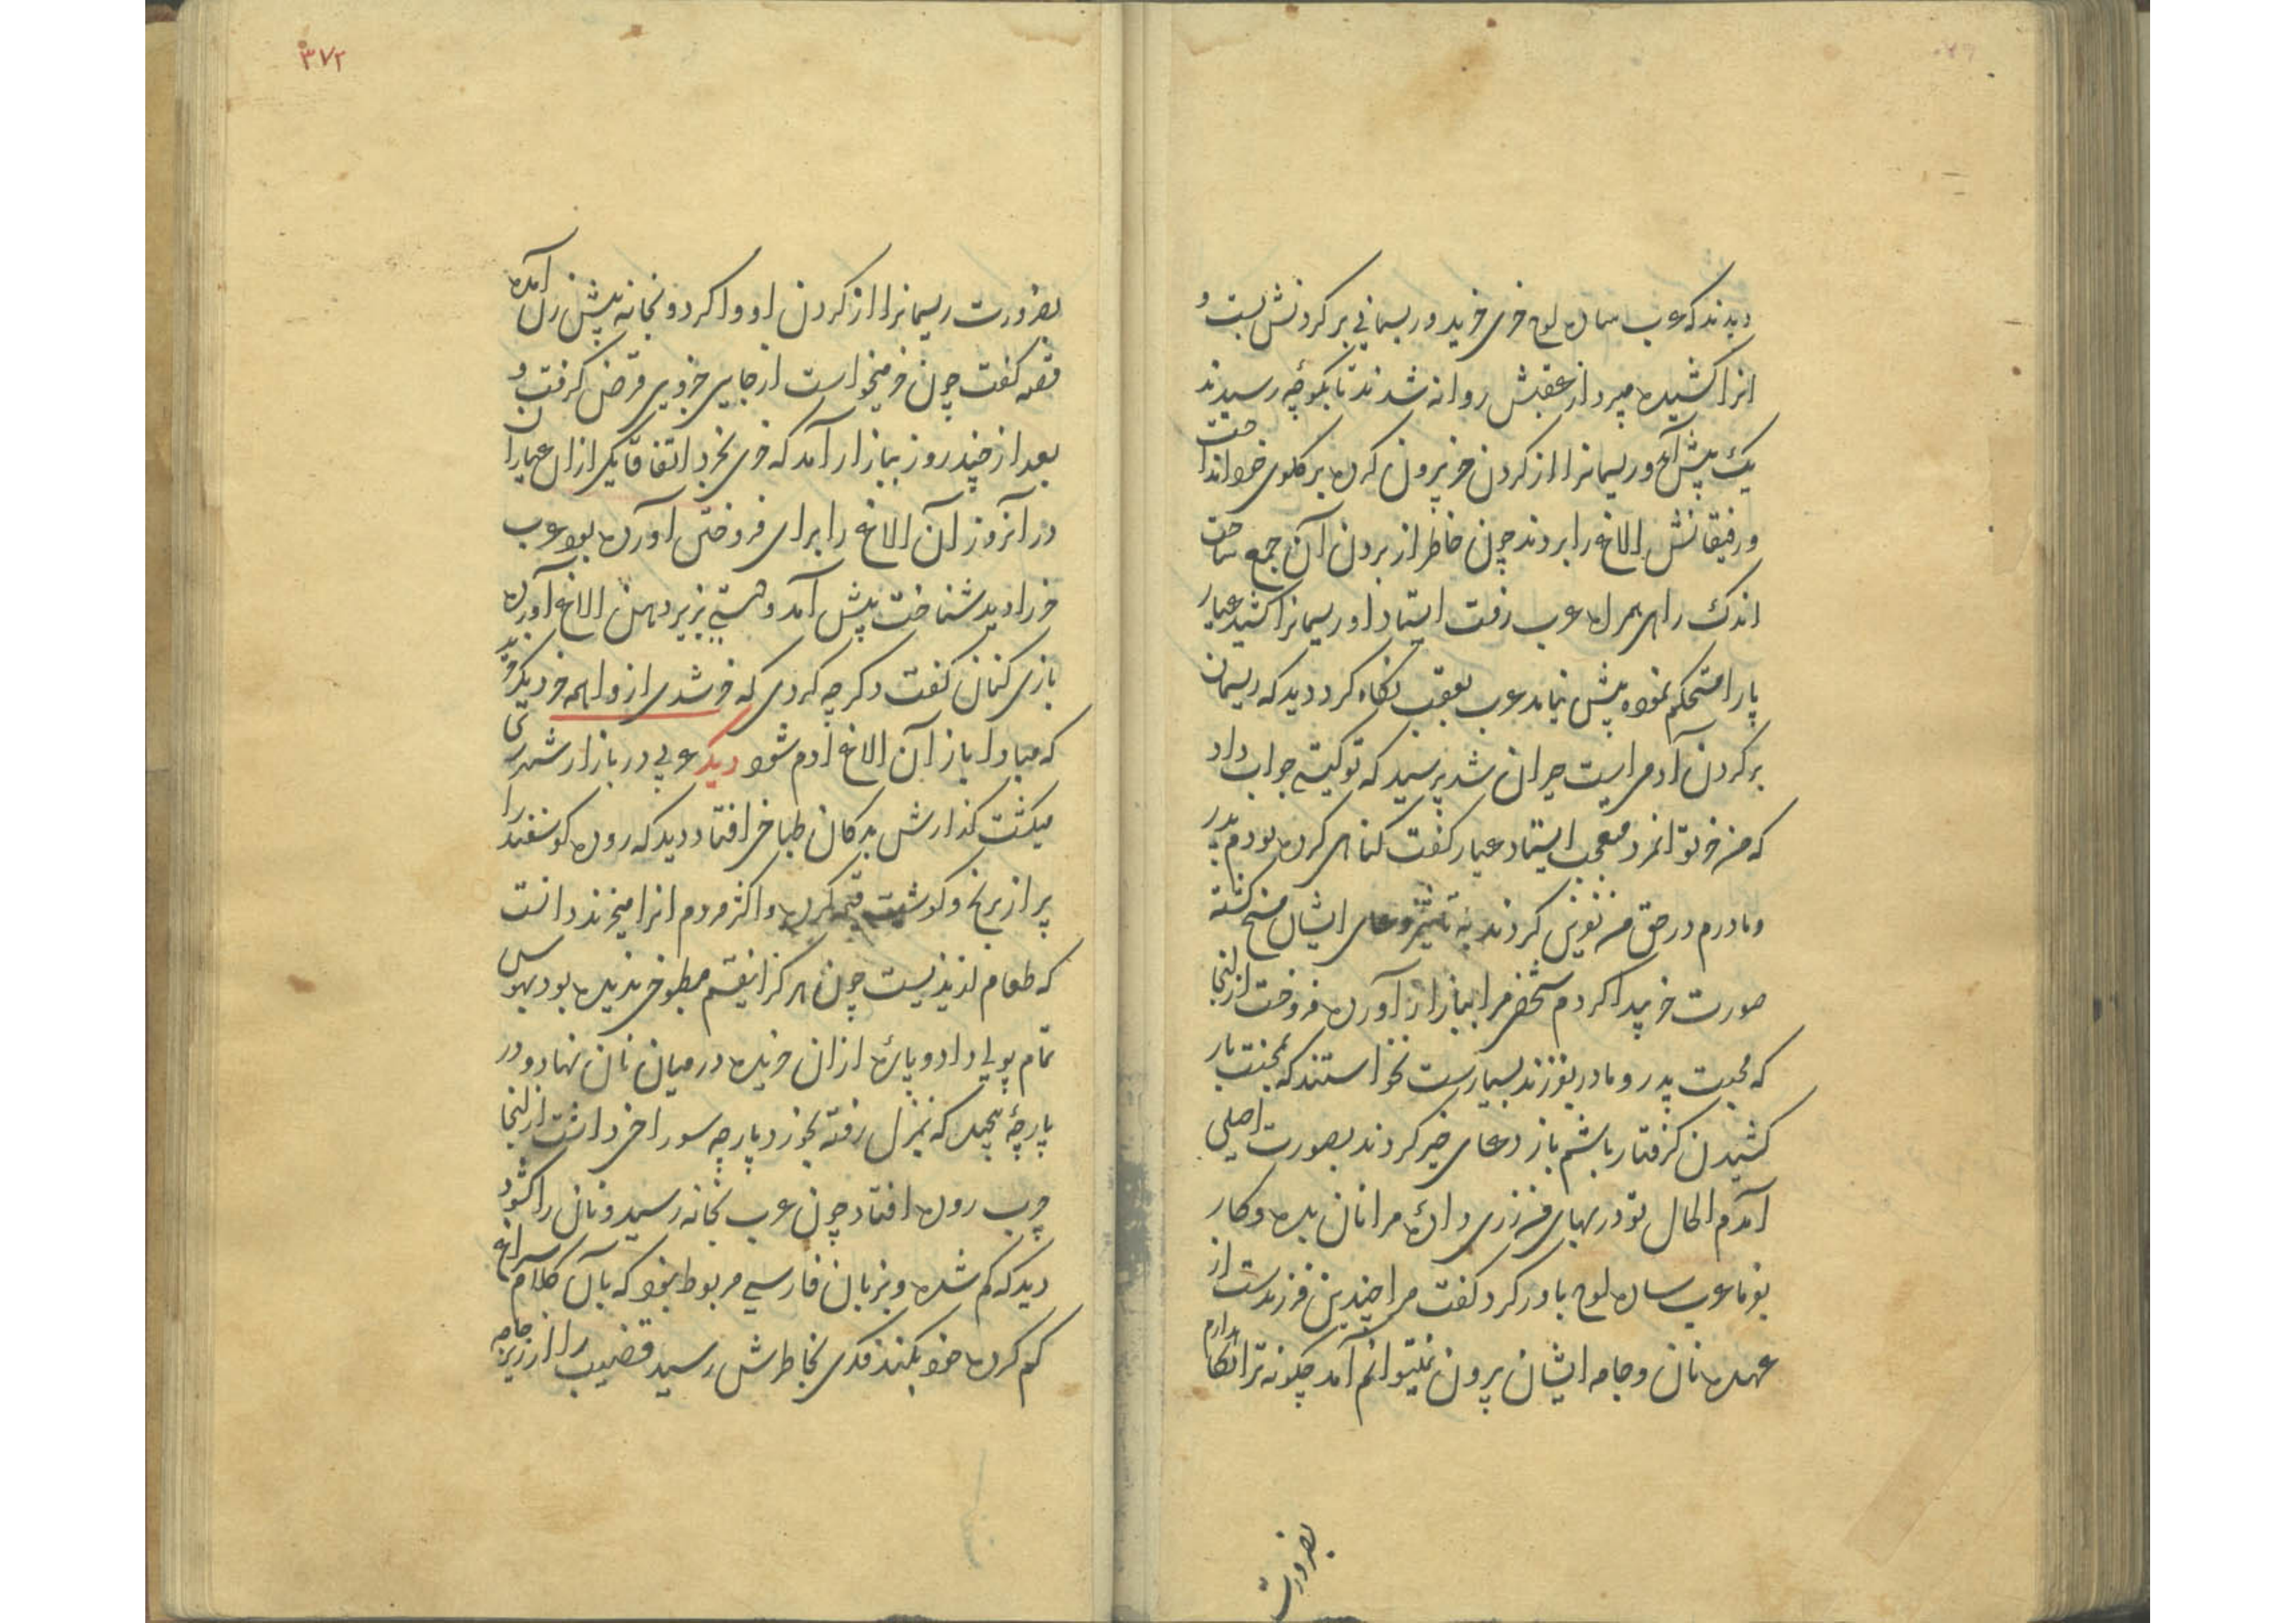 دیدند که عرب ساده لوح خری خرید و ریسمانی بر کردنش بست و
انرا کشیده میبرد از عقبش روانه شدند تا بکوچه رسیدند
یک پیش آمد و ریسمانرا از کردن خر بیرون کرده بر کلوی خود انداخت
و رفیقانش الاغ را بردند چون خاطر از بردن آن جمع ساخت
اندک راهی همراه عرب رفت ایستاد او ریسمانرا کشید عیار
پا را مستحکم نموده پیش نیامد عرب بعقب نکاه کرد دید که ریسمان
بر کردن آدمی است حیران شد پرسید که تو کیستی جواب داد
که من خر تو ام انمرد متعجب ایستاد عیار کفت کناهی کرده بودم پدر
و مادرم در حق من نفرین کردند به تاثیر دعای ایشان مسخ کشته
صورت خر پیدا کردم شخصی مرا ببازار آورده فروخت از انجا
که محبت پدر و مادر بفرزند بسیار است نخواستند که بمحنت بار
کشیدن کرفتار باشم باز دعای خیر کردند بصورت اصلی
آمدم الحال تو در بهای من زری دادۀ مرا نان بده و کار
بفرما عرب ساده لوح باور کرد کفت مرا چندین فرزند است از
عهده نان و جامه ایشان برون نمیتوانم آمد چکونه ترا نکاه دارم
بضرورت
۳۷۲
بضرورت ریسمانرا از کردن او وا کرد و بخانه پیش زن آمده
قصه کفت چون خر میخواست از جایی جزوی قرض کرفت و
بعد از چند روز ببازار آمد که خری بخرد اتفاقا یکی از ان عیاران
در آنروز آن الاغ را برای فروختن آورده بود عرب
خر را دید شناخت پیش آمد و دستی بزیر دهن الاغ آورده
بازی کنان کفت دکر چه کردی که خر شدی از واهمه خر دیکر خرید
که مبادا باز آن الاغ آدم شود دیکر عربی در بازار شهری
میکشت کذارش بدکان طباخی افتاد دید که روده کوسفند را
پر از برنج و کوشت قیمه کرده و اکثر مردم انرا میخرند دانست
که طعام لذیذیست چون هرکز اینقسم مطبوخی ندیده بود بهوس
تمام پولی داد و پارۀ از ان خریده در میان نان نهاد و در
پارچۀ پیچید که بمنزل رفته بخورد پارچه سوراخی داشت از انجا
چرب روده افتاد چون عرب بخانه رسید و نان را کشود
دید که کم شده و بزبان فارسی مربوط نبود که بآن کلام سراغ
کم کرده خود بکند فکری بخاطرش رسید قضیب را از زیر جامه